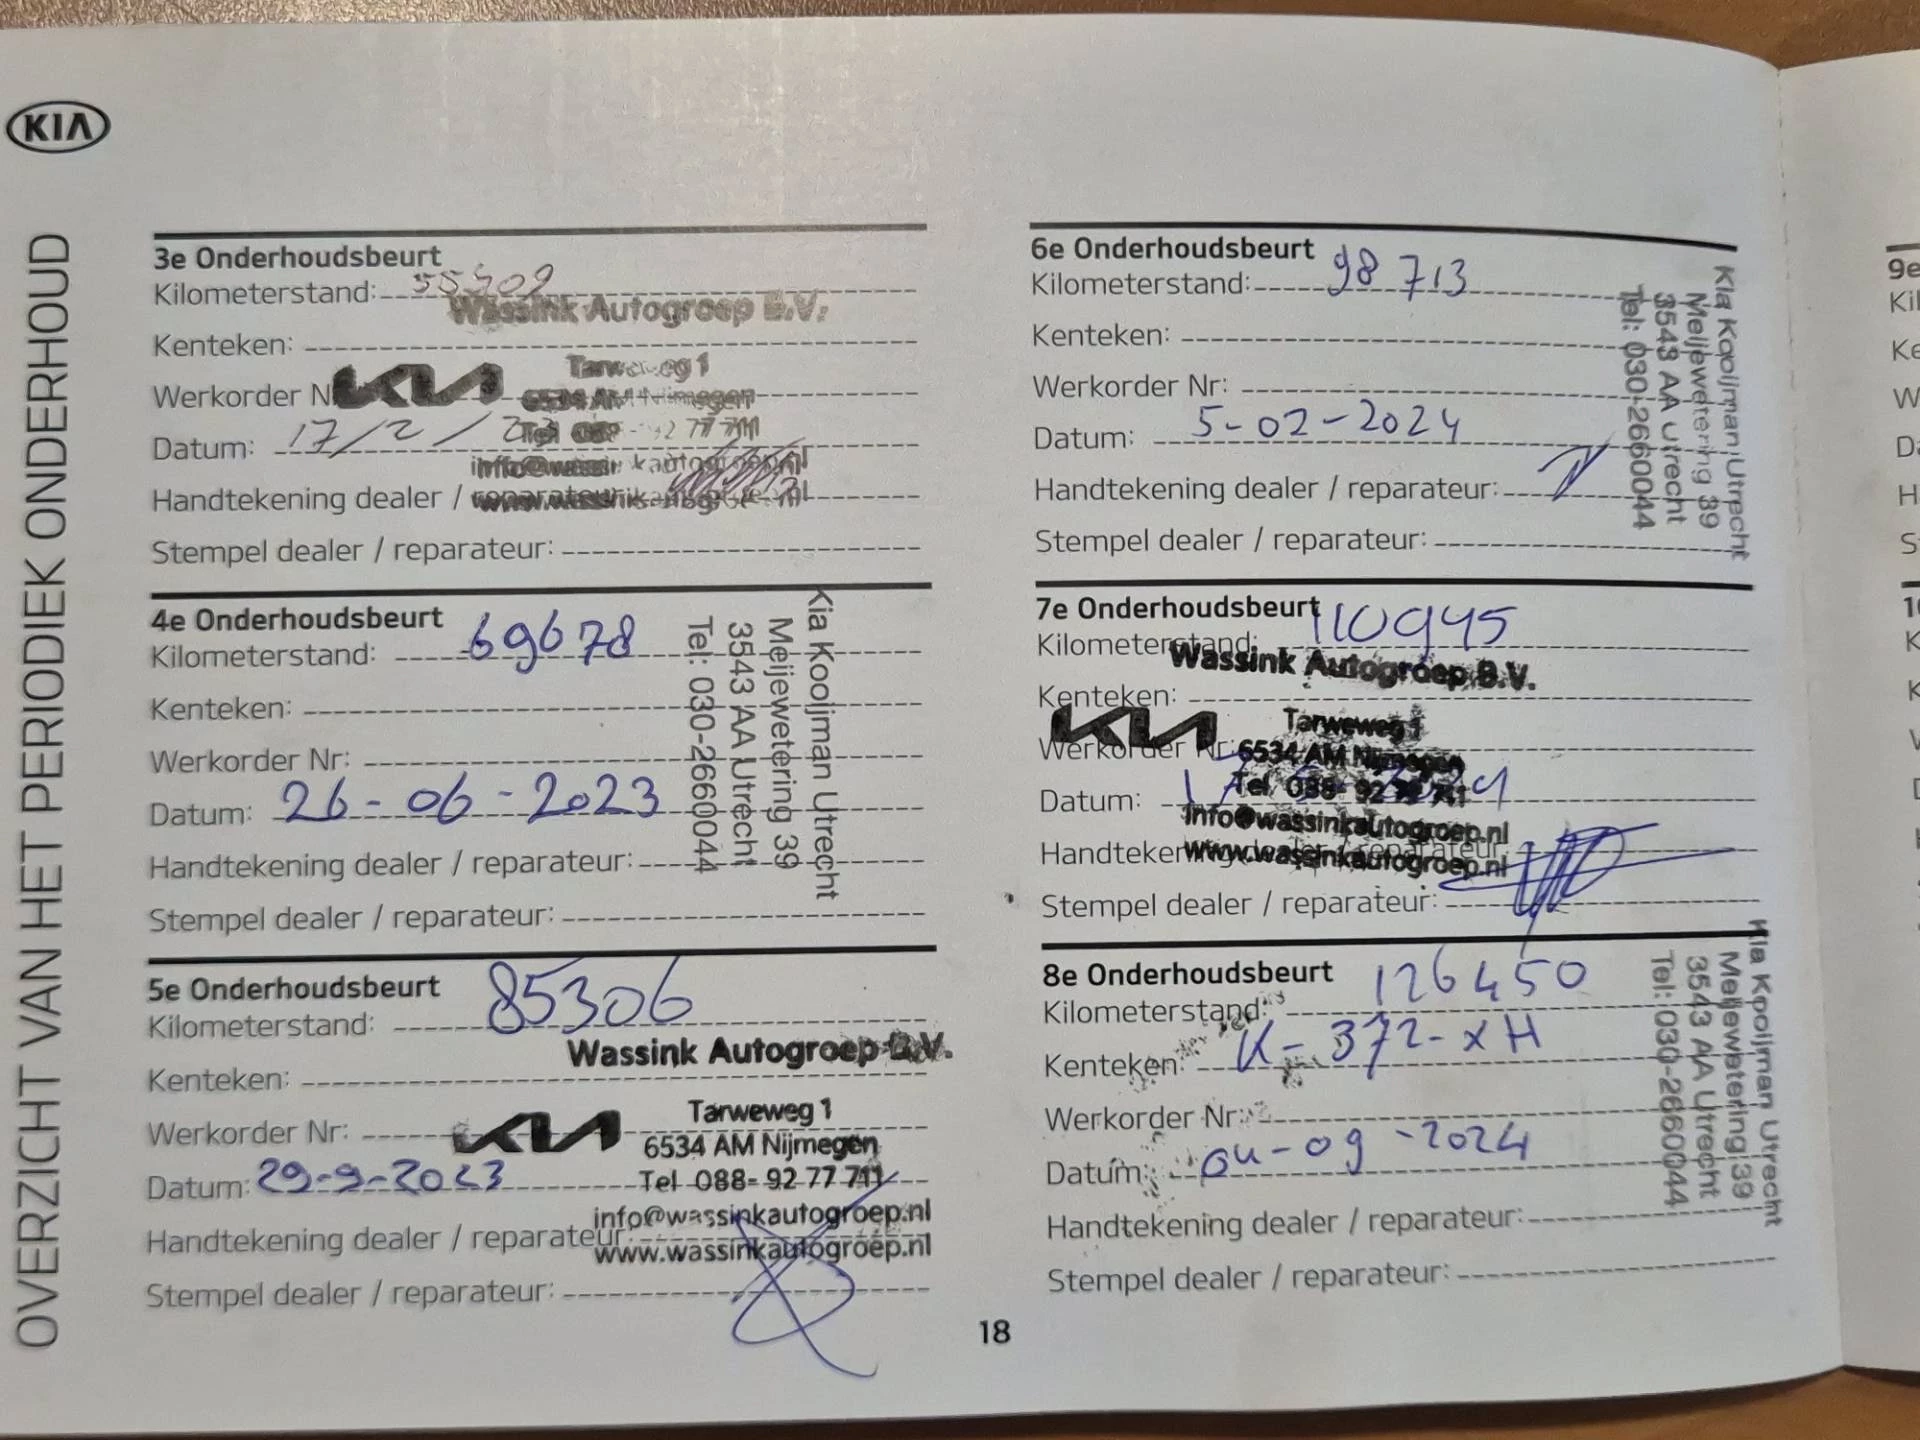 KIA
OVERZICHT VAN HET PERIODIEK ONDERHOUD
3e Onderhoudsbeurt
Kilometerstand: 55909
Wassink Autogroep B.V.
Kenteken:
Tarweweg 1
Werkorder N KIA 6534 AM Nijmegen
Datum: 17/2/23 Tel 088-92 77 711
info@wassinkautogroep.nl
Handtekening dealer / reparateur: www.wassinkautogroep.nl
Stempel dealer / reparateur:
4e Onderhoudsbeurt
Kilometerstand: 69678
Kenteken:
Werkorder Nr:
Datum: 26-06-2023
Handtekening dealer / reparateur:
Stempel dealer / reparateur:
Kia Kooijman Utrecht
Meijewetering 39
3543 AA Utrecht
Tel: 030-2660044
5e Onderhoudsbeurt
Kilometerstand: 85306
Wassink Autogroep B.V.
Kenteken:
Tarweweg 1
Werkorder Nr: KIA 6534 AM Nijmegen
Datum: 29-9-2023 Tel 088-92 77 711
info@wassinkautogroep.nl
Handtekening dealer / reparateur: www.wassinkautogroep.nl
Stempel dealer / reparateur:
6e Onderhoudsbeurt
Kilometerstand: 98713
Kenteken:
Werkorder Nr:
Datum: 5-02-2024
Handtekening dealer / reparateur:
Stempel dealer / reparateur:
Kia Kooijman Utrecht
Meijewetering 39
3543 AA Utrecht
Tel: 030-2660044
7e Onderhoudsbeurt
Kilometerstand: 110945
Wassink Autogroep B.V.
Kenteken:
KIA Tarweweg 1
Werkorder Nr: 6534 AM Nijmegen
Datum: Tel 088-92 77 711
info@wassinkautogroep.nl
Handtekening dealer / reparateur: www.wassinkautogroep.nl
Stempel dealer / reparateur:
8e Onderhoudsbeurt
Kilometerstand: 126450
Kenteken: K-372-XH
Werkorder Nr:
Datum: 04-09-2024
Handtekening dealer / reparateur:
Stempel dealer / reparateur:
Kia Kooijman Utrecht
Meijewetering 39
3543 AA Utrecht
Tel: 030-2660044
18
9e